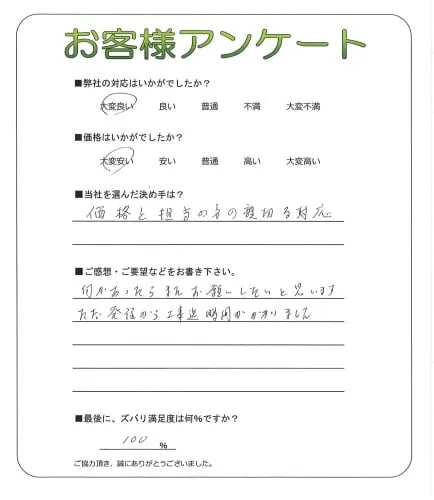 お客様アンケート
■弊社の対応はいかがでしたか？
大変良い 良い 普通 不満 大変不満
■価格はいかがでしたか？
大変安い 安い 普通 高い 大変高い
■当社を選んだ決め手は？
価格と担当の方の親切な対応
■ご感想・ご要望などをお書き下さい。
何かあったらまたお願いしたいと思います
ただ発注から工事迄時間がかかりました
■最後に、ズバリ満足度は何％ですか？
100 ％
ご協力頂き、誠にありがとうございました。